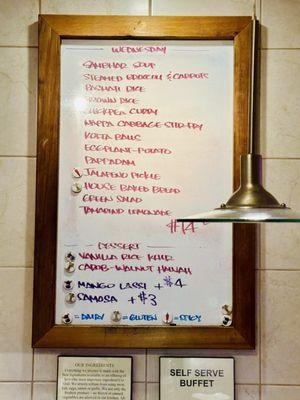 WEDNESDAY
SAMBHAR SOUP
STEAMED BROCCOLI & CARROTS
BASMATI RICE
BROWN RICE
CHICKPEA CURRY
NAPPA CABBAGE STIR-FRY
KOFTA BALLS
EGGPLANT-POTATO
PAPPADAM
JALAPENO PICKLE
HOUSE BAKED BREAD
GREEN SALAD
TAMARIND LEMONADE
$14
DESSERT
VANILLA RICE KHIR
CAROB-WALNUT HALVAH
MANGO LASSI + $4
SAMOSA + $3
= DAIRY = GLUTEN = SPICY
OUR INGREDIENTS
SELF SERVE
BUFFET